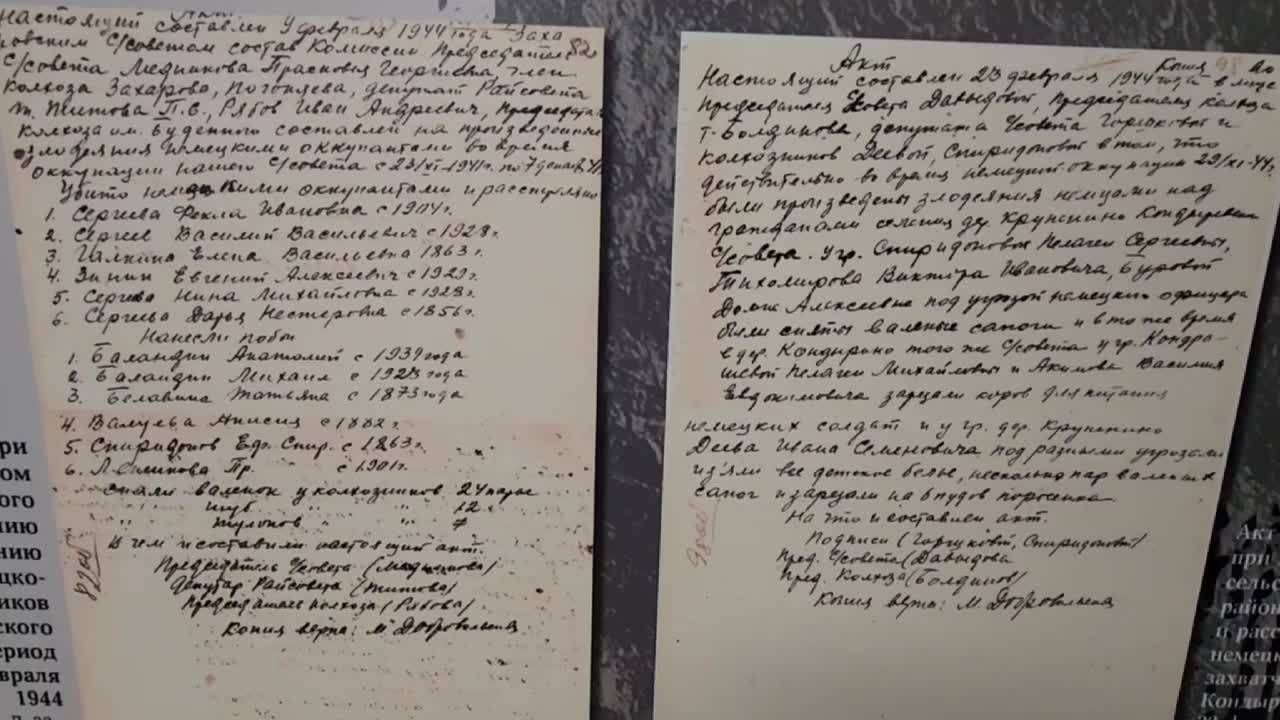 Акт.
Настоящий составлен 9 февраля 1944 года Заха
ровским С/советом состав комиссии председатель
С/совета Медникова Прасковья Георгиевна, член
колхоза Захарова, депутат Райсовета
т. Титова П.С., Рябов Иван Андреевич, председат
колхоза им. Буденного составлен на произведенные
злодеяния немецкими оккупантами во время
оккупации нашего С/совета с 23/XI-1941г. по 7 декаб. 41г.
Убито немецкими оккупантами и расстреляно
1. Сергеева Фекла Ивановна с 1904г.
2. Сергеев Василий Васильевич с 1928г.
3. Галкина Елена Васильевна 1863г.
4. Зинин Евгений Алексеевич с 1929г.
5. Сергеева Нина Михайловна с 1928г.
6. Сергеева Дарья Нестеровна с 1856г.
Нанесли побои
1. Баландин Анатолий с 1939 года
2. Баландин Михаил с 1923 года
3. Белавина Татьяна с 1873 года
4. Валуева Анисия с 1882г.
5. Спиридонов Спир. с 1863г.
6. Пр. с 1901г.
сняли валенок у колхозников 24 пары
шуб " " 12 "
тулупов " " 7
В чем и составили настоящий акт.
Председатель С/совета (Медникова)
Депутат Райсовета (Титова)
Председатель колхоза (Рябова)
Копия верна: М Добровольская
82об
82
Акт
Копия 98
Настоящий составлен 23 февраля 1944 года в лице
председателя С/совета Давыдовой, председателя колхоза
т. Болдинова, депутата С/совета Горшковой и
колхозников Деевой, Спиридоновой в том, что
действительно во время немецкой оккупации 29/XI-44г.
были произведены злодеяния немцами над
гражданами селения дер. Крупенино Кондыревского
С/совета. У гр. Спиридоновой Пелагеи Сергеевны,
Тихомирова Виктора Ивановича, Буровой
Домны Алексеевне под угрозой немецкого офицера
были сняты валеные сапоги и в то же время
в дер. Кондырино того же С/совета у гр. Кондра-
шевой Пелагеи Михайловны и Акимова Василия
Евдокимовича зарезали коров для питания
немецких солдат и у гр. дер. Крупенино
Деева Ивана Семеновича под разными угрозами
изъяли все детское белье, несколько пар валеных
сапог и зарезали на 6 пудов поросенка.
На что и составлен акт.
Подписи (Горшковой, Спиридоновой)
Пред. С/совета (Давыдова
Пред. Колхоза (Болдинов)
Копия верна: М Добровольская
98об
ри
ом
ого
нию
ению
цко-
иков
ского
ериод
враля
1944
Акт
при
сельс
район
и расс
немецк
захватч
Кондыр